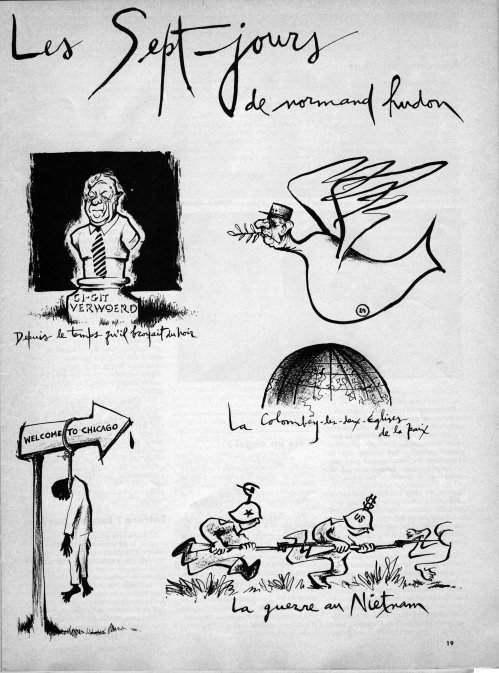 Les Sept-jours
de normand hudon
CI-GIT
VERWOERD
Depuis le temps qu'il broyait du noir
La Colombey-les-deux-Églises
de la paix
WELCOME TO CHICAGO
$
US
La guerre au Nietnam
19